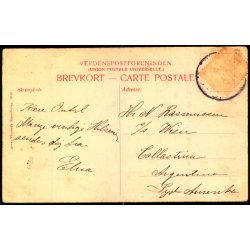 VERDENSPOSTFORENINGEN
(UNION POSTALE UNIVERSELLE.)
BREVKORT — CARTE POSTALE
Skriveplads: Adresse:
Kære Onkel
Mange venlige Hilsen
sendes dig fra
Elna
Hr N Rasmussen
Collastina
Argentina
Syd Amerika